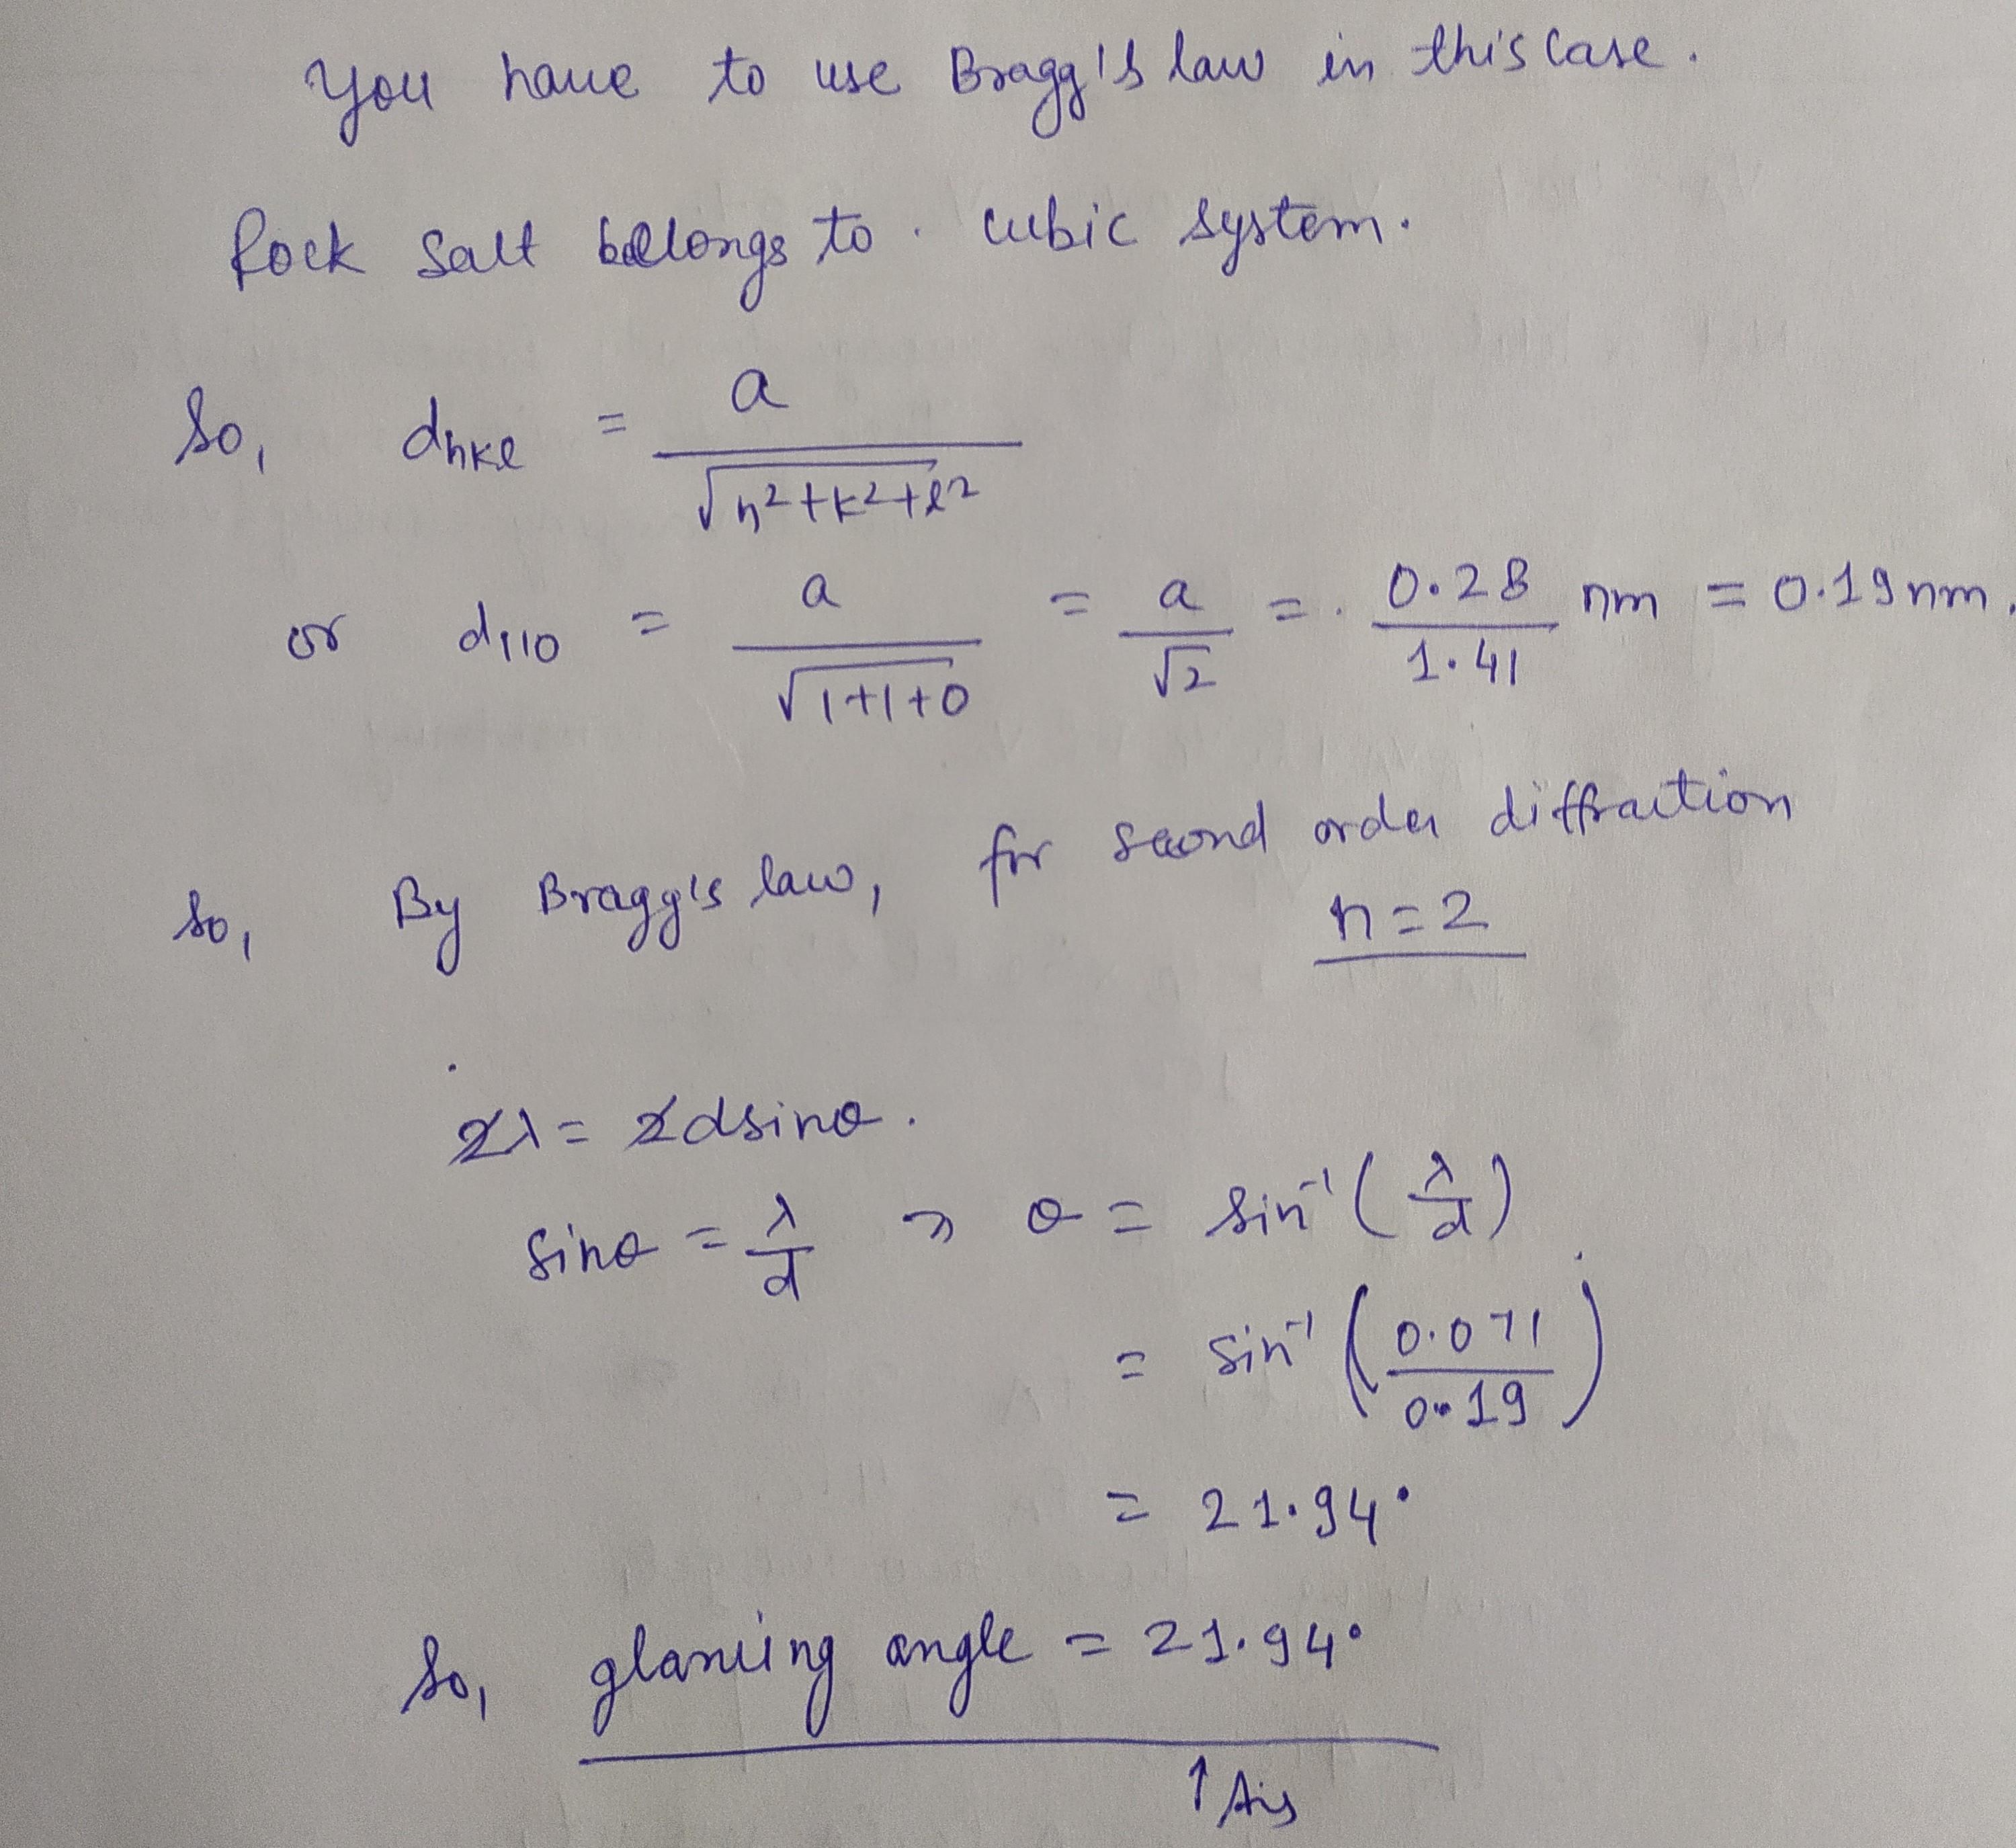 You have to use Bragg's law in this case.
Rock Salt belongs to cubic system.
So, dhkl = a / √h²+k²+l²
or d110 = a / √1+1+0 = a / √2 = 0.28 / 1.41 nm = 0.19 nm.
So, By Bragg's law, for second order diffraction
n = 2
2λ = 2dsinθ.
sinθ = λ/d ⇒ θ = sin⁻¹(λ/d)
= sin⁻¹(0.071 / 0.19)
= 21.94°
So, glancing angle = 21.94°
↑ Ans